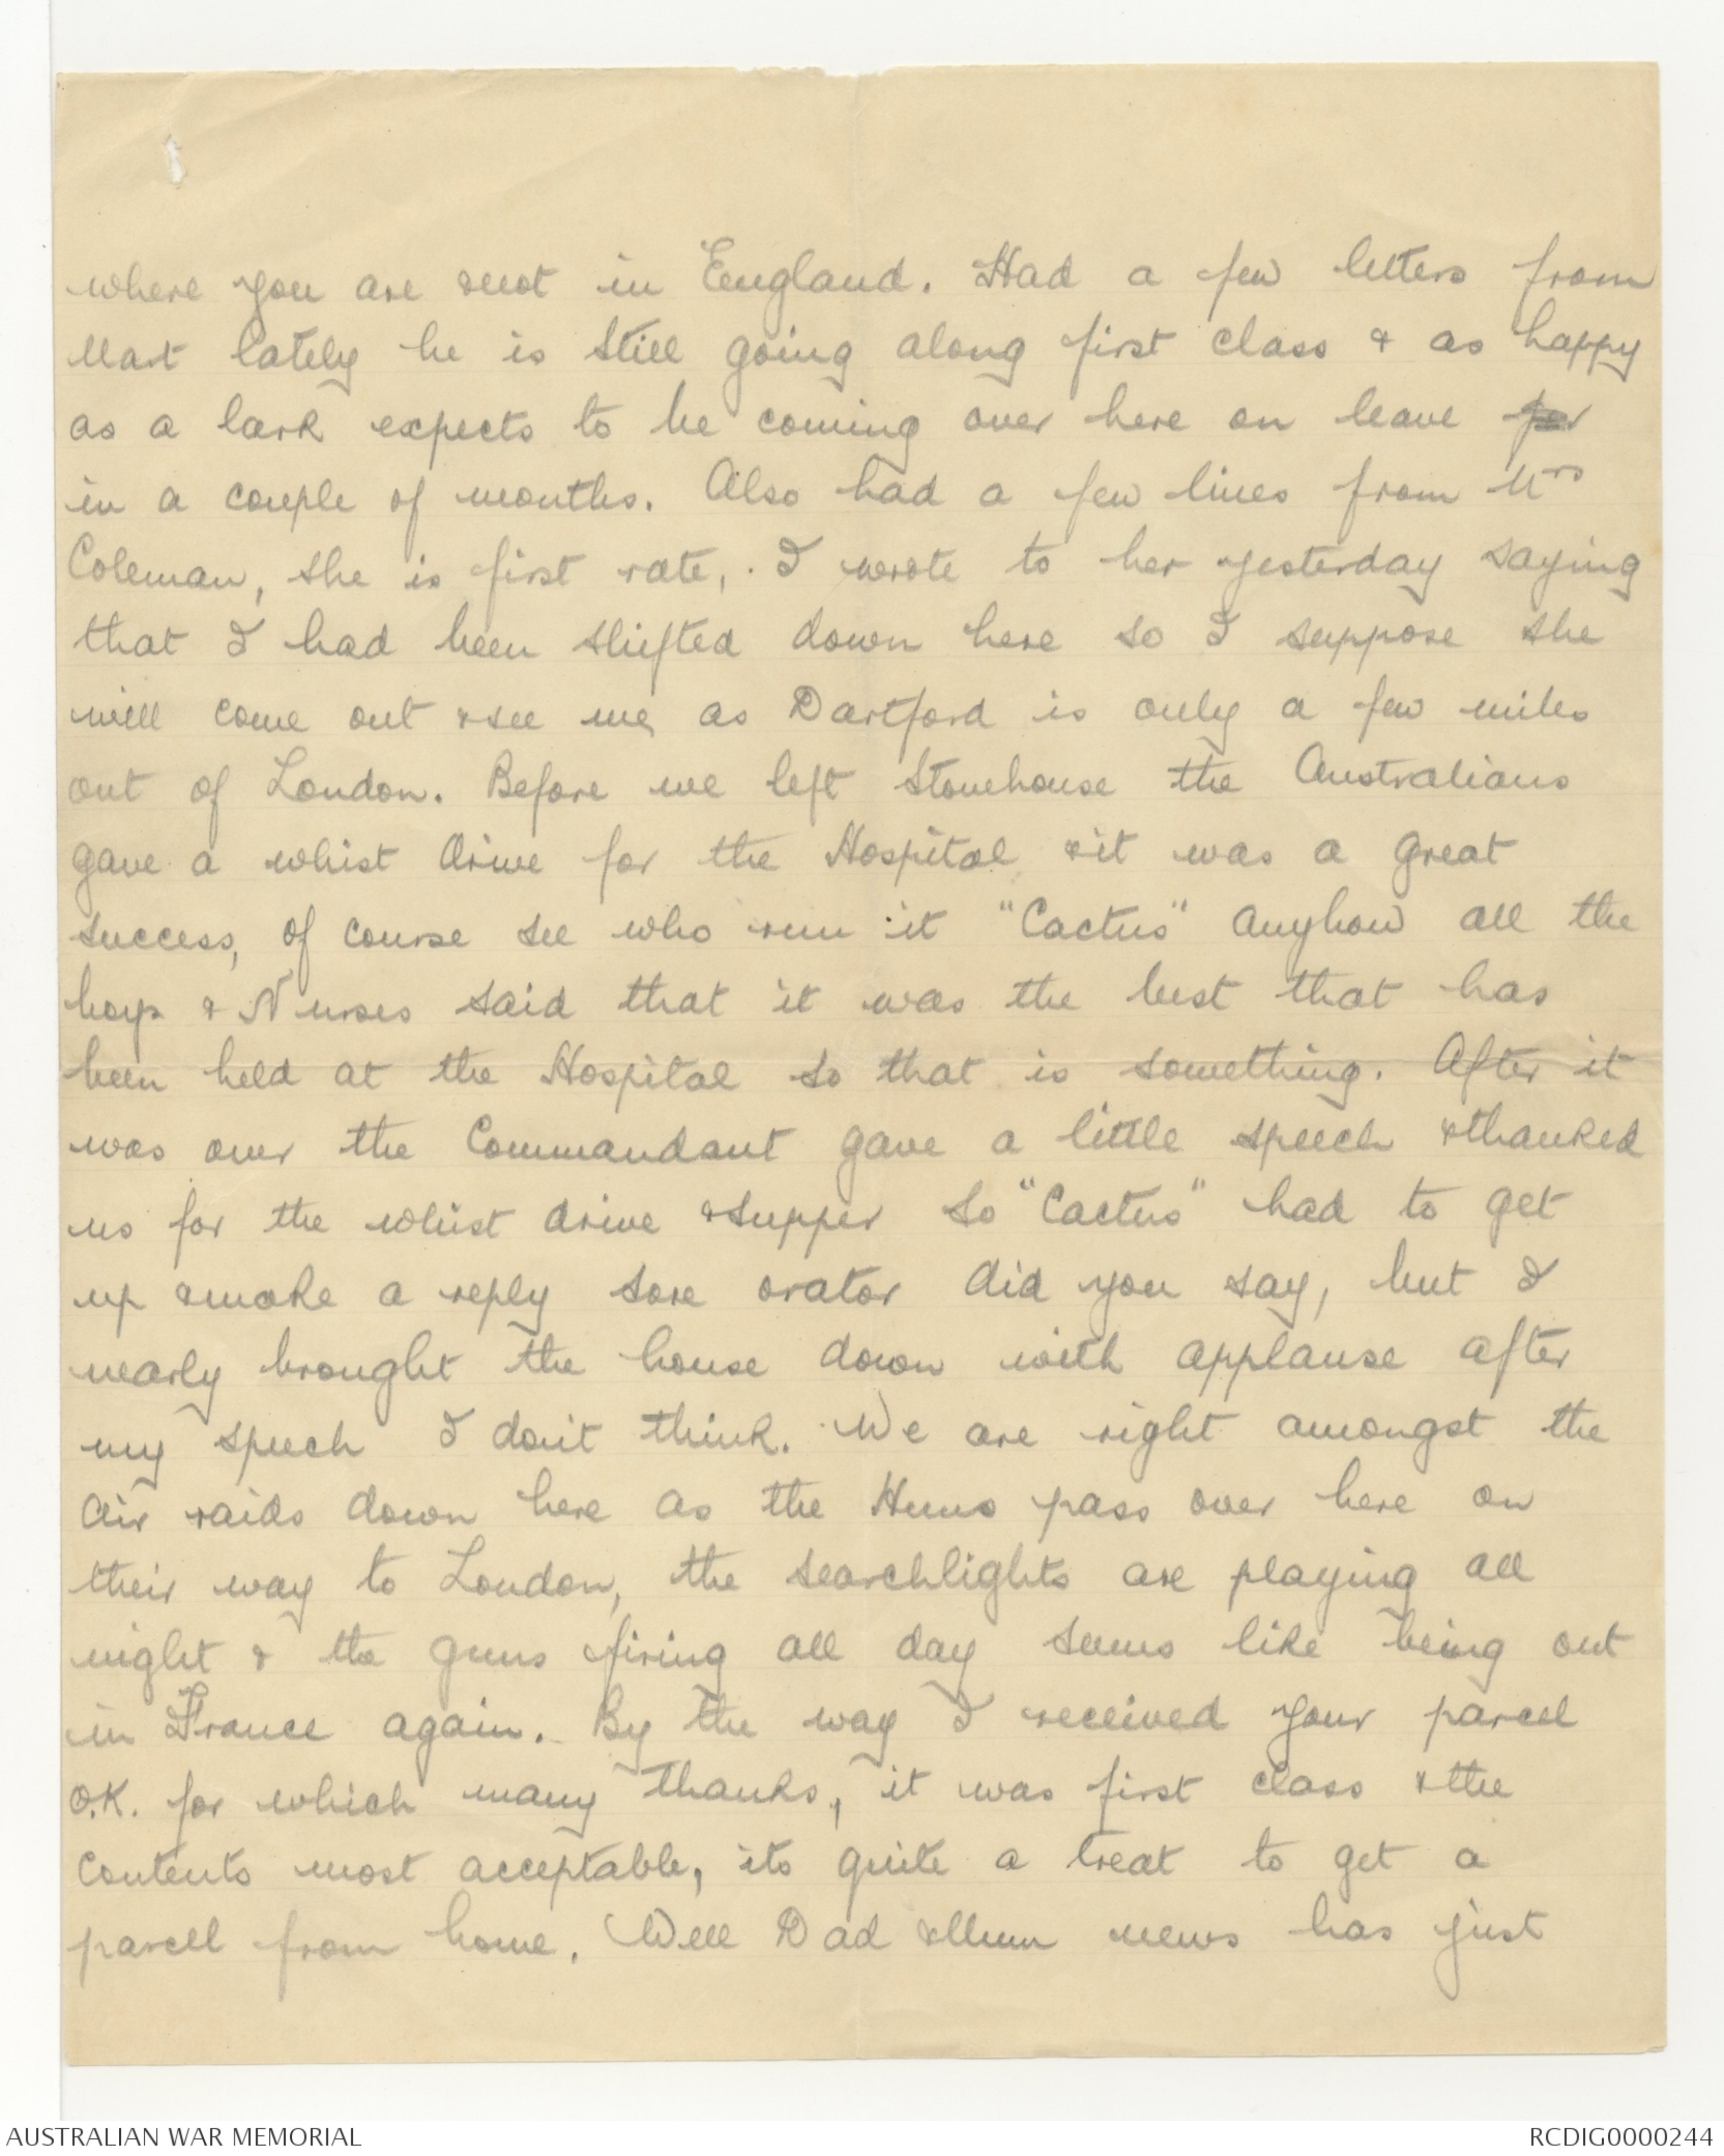 where you are sent in England. Had a few letters from
Mat lately he is still going along first class & as happy
as a lark expects to be coming over here on leave
in a couple of months. Also had a few lines from Mrs
Coleman, she is first rate, . I wrote to her yesterday saying
that I had been shifted down here so I suppose she
will come out & see me, as Dartford is only a few miles
out of London. Before we left Stonehouse the Australians
gave a whist drive for the Hospital & it was a great
success, of course see who run it "Cactus" anyhow all the
boys & Nurses said that it was the best that has
been held at the Hospital so that is something. After it
was over the Commandant gave a little speech & thanked
us for the whist drive & supper so "Cactus" had to get
up & make a reply some orator did you say, but I
nearly brought the house down with applause after
my speech I don't think. We are right amongst the
air raids down here as the Huns pass over here on
their way to London, the searchlights are playing all
night & the guns firing all day seems like being out
in France again. By the way I received your parcel
O.K. for which many thanks, it was first class & the
contents most acceptable, its quite a treat to get a
parcel from home. Well Dad & Mum news has just
AUSTRALIAN WAR MEMORIAL
RCDIG0000244